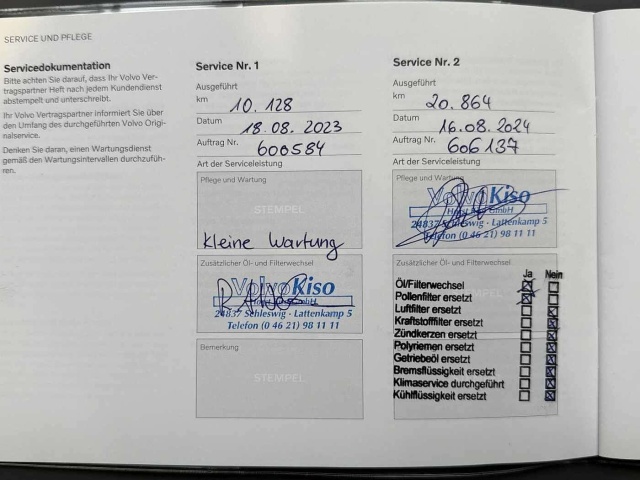 SERVICE UND PFLEGE
Servicedokumentation
Bitte achten Sie darauf, dass Ihr Volvo Ver-
tragspartner Heft nach jedem Kundendienst
abstempelt und unterschreibt.
Ihr Volvo Vertragspartner informiert Sie über
den Umfang des durchgeführten Volvo Origi-
nalservice.
Denken Sie daran, einen Wartungsdienst
gemäß den Wartungsintervallen durchzufüh-
ren.
Service Nr. 1
Ausgeführt
km 10.128
Datum 18.08.2023
Auftrag Nr. 600584
Art der Serviceleistung
Pflege und Wartung
STEMPEL
Kleine Wartung
Zusätzlicher Öl- und Filterwechsel
Volvo Kiso
GmbH
24837 Schleswig · Lattenkamp 5
Telefon (0 46 21) 98 11 11
Bemerkung
STEMPEL
Service Nr. 2
Ausgeführt
km 20.864
Datum 16.08.2024
Auftrag Nr. 606137
Art der Serviceleistung
Pflege und Wartung
Volvo Kiso
GmbH
24837 Schleswig · Lattenkamp 5
Telefon (0 46 21) 98 11 11
Zusätzlicher Öl- und Filterwechsel
Ja Nein
Öl/Filterwechsel
Pollenfilter ersetzt
Luftfilter ersetzt
Kraftstofffilter ersetzt
Zündkerzen ersetzt
Polyriemen ersetzt
Getriebeöl ersetzt
Bremsflüssigkeit ersetzt
Klimaservice durchgeführt
Kühlflüssigkeit ersetzt